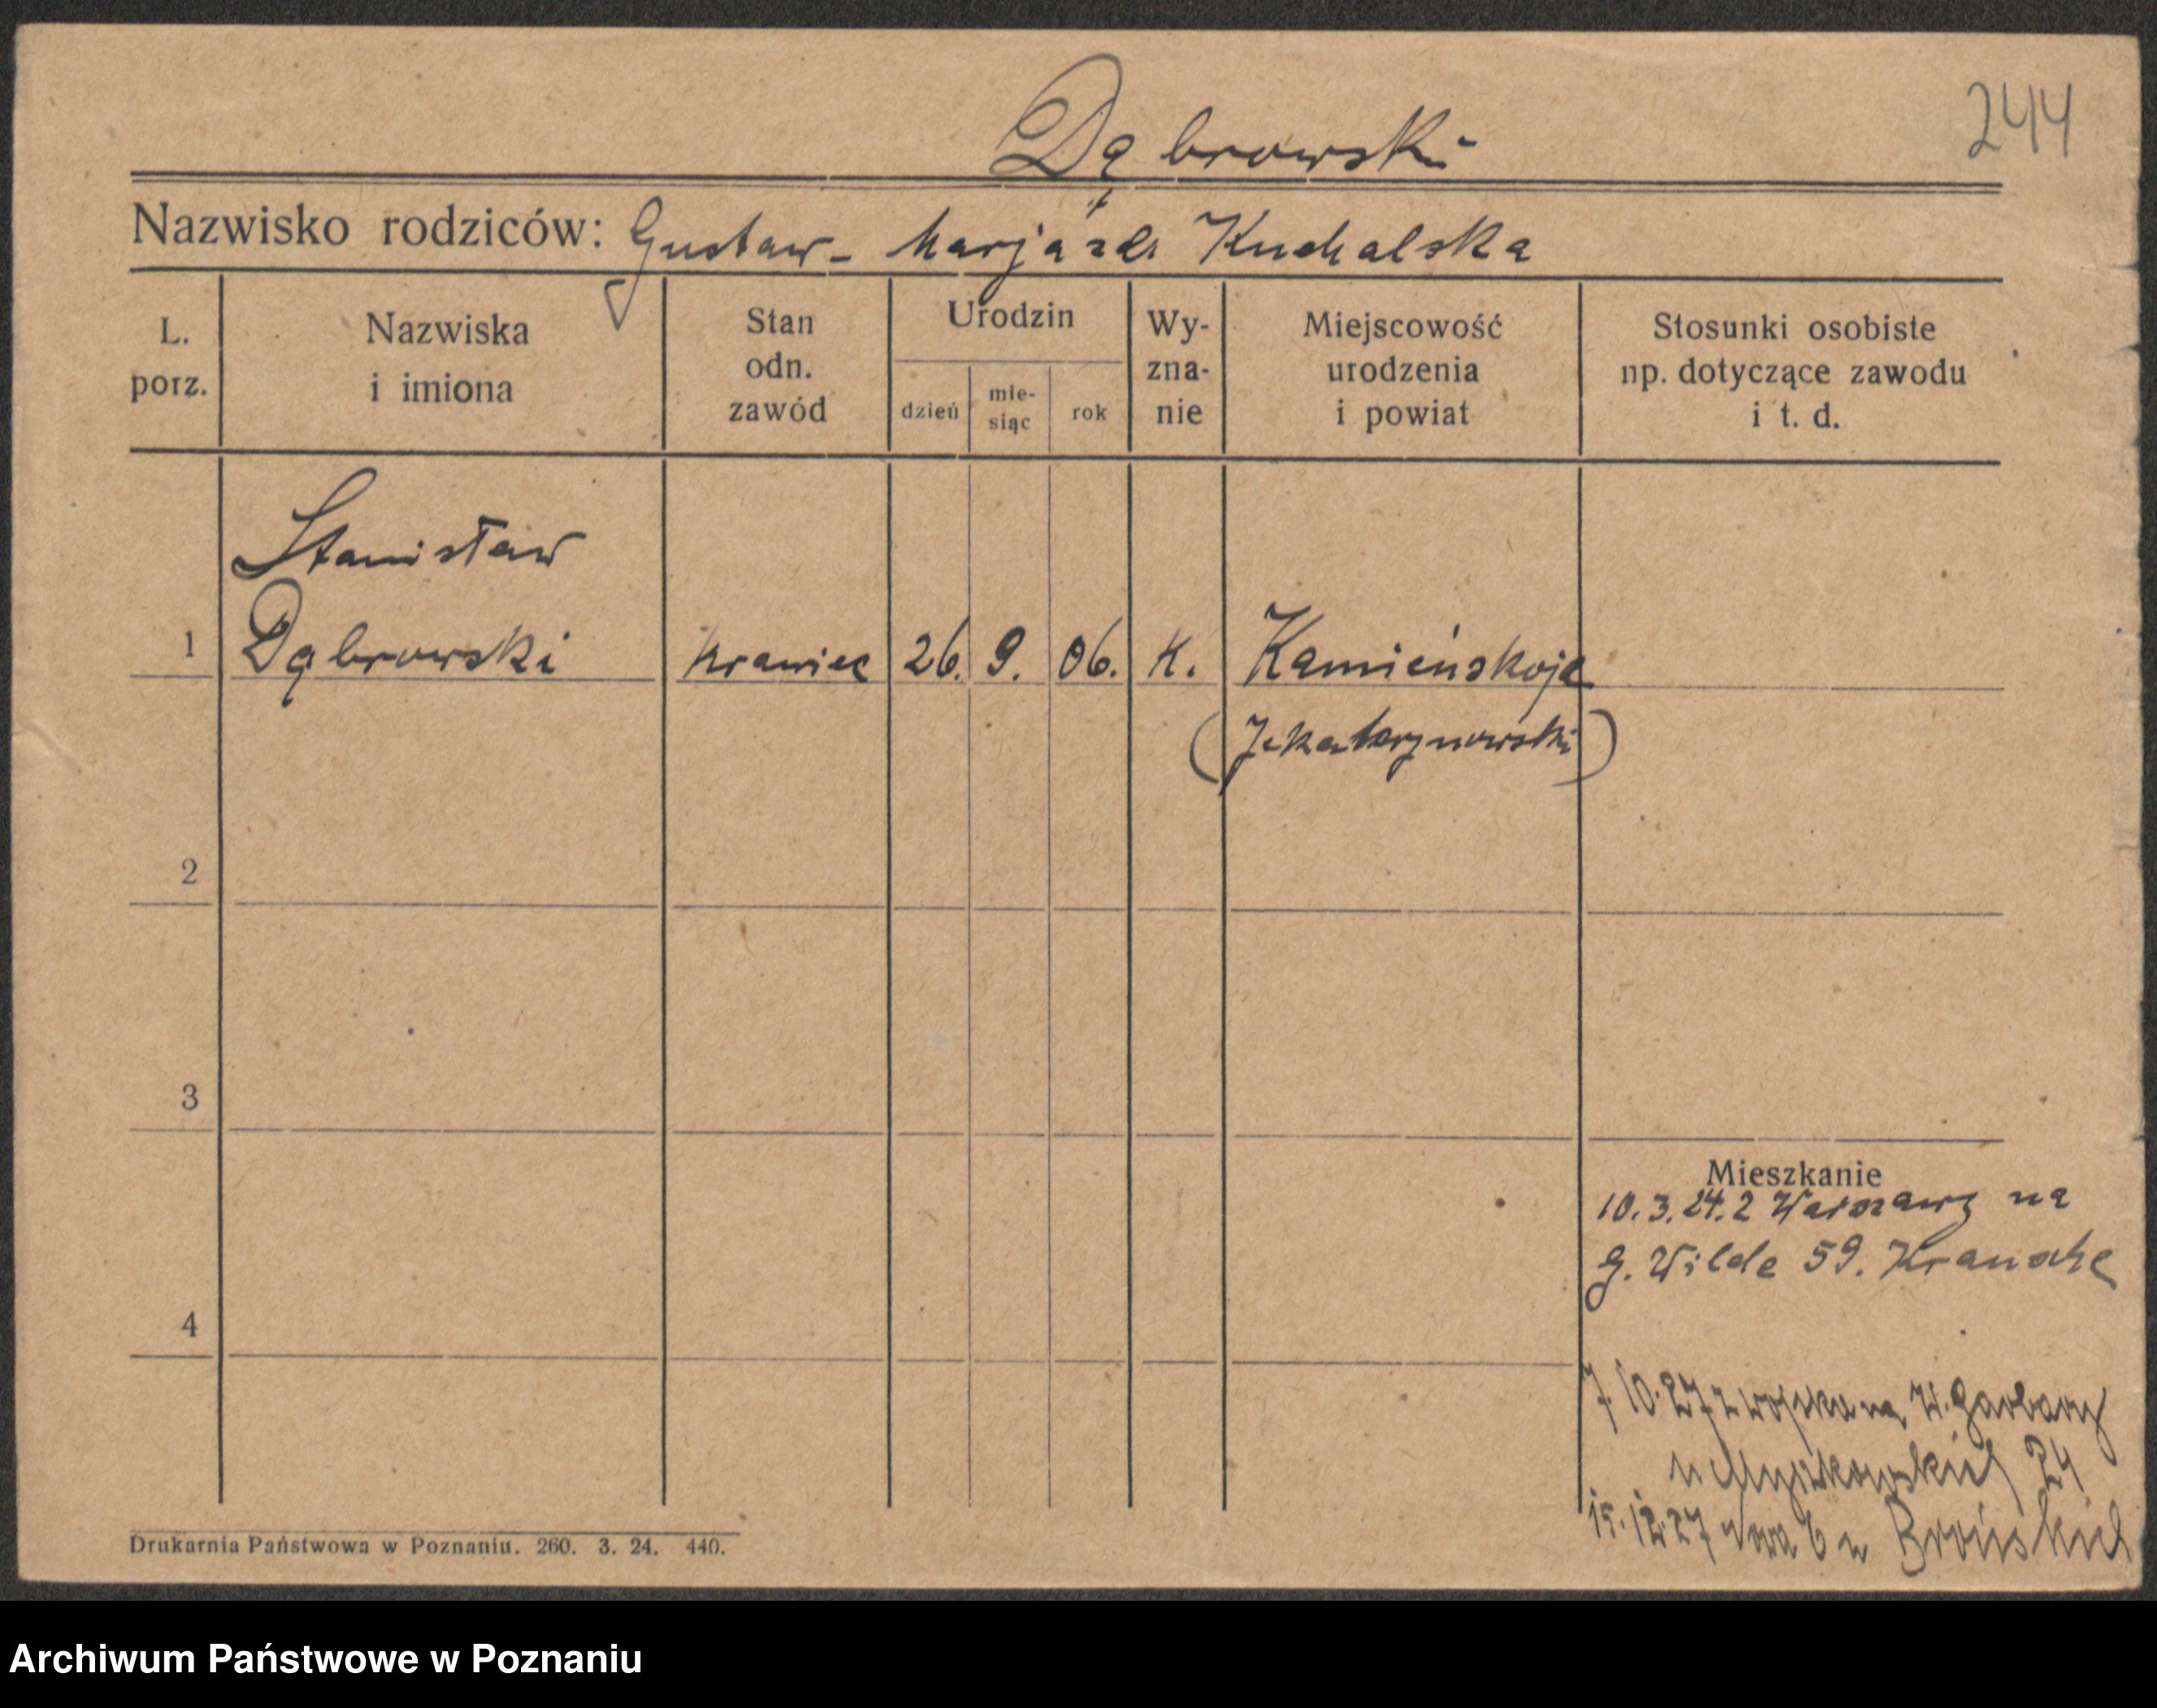 244
Dąbrowski
Nazwisko rodziców: Gustaw - Marja z d. Kuchalska
L. porz.
Nazwiska i imiona
Stan odn. zawód
Urodzin
dzień
mie-siąc
rok
Wy-zna-nie
Miejscowość urodzenia i powiat
Stosunki osobiste np. dotyczące zawodu i t. d.
Stanisław
1 Dąbrowski krawiec 26. 9. 06. K. Kamieńskoje
(Jekaterynowski)
2
3
Mieszkanie
10.3.24. z Warszawy na
G. Wilde 59. Krausche
4
7.10.27 z wojska na W. Garbary
u 24
15.12.27 6 u Brońskich
Drukarnia Państwowa w Poznaniu. 260. 3. 24. 440.
Archiwum Państwowe w Poznaniu